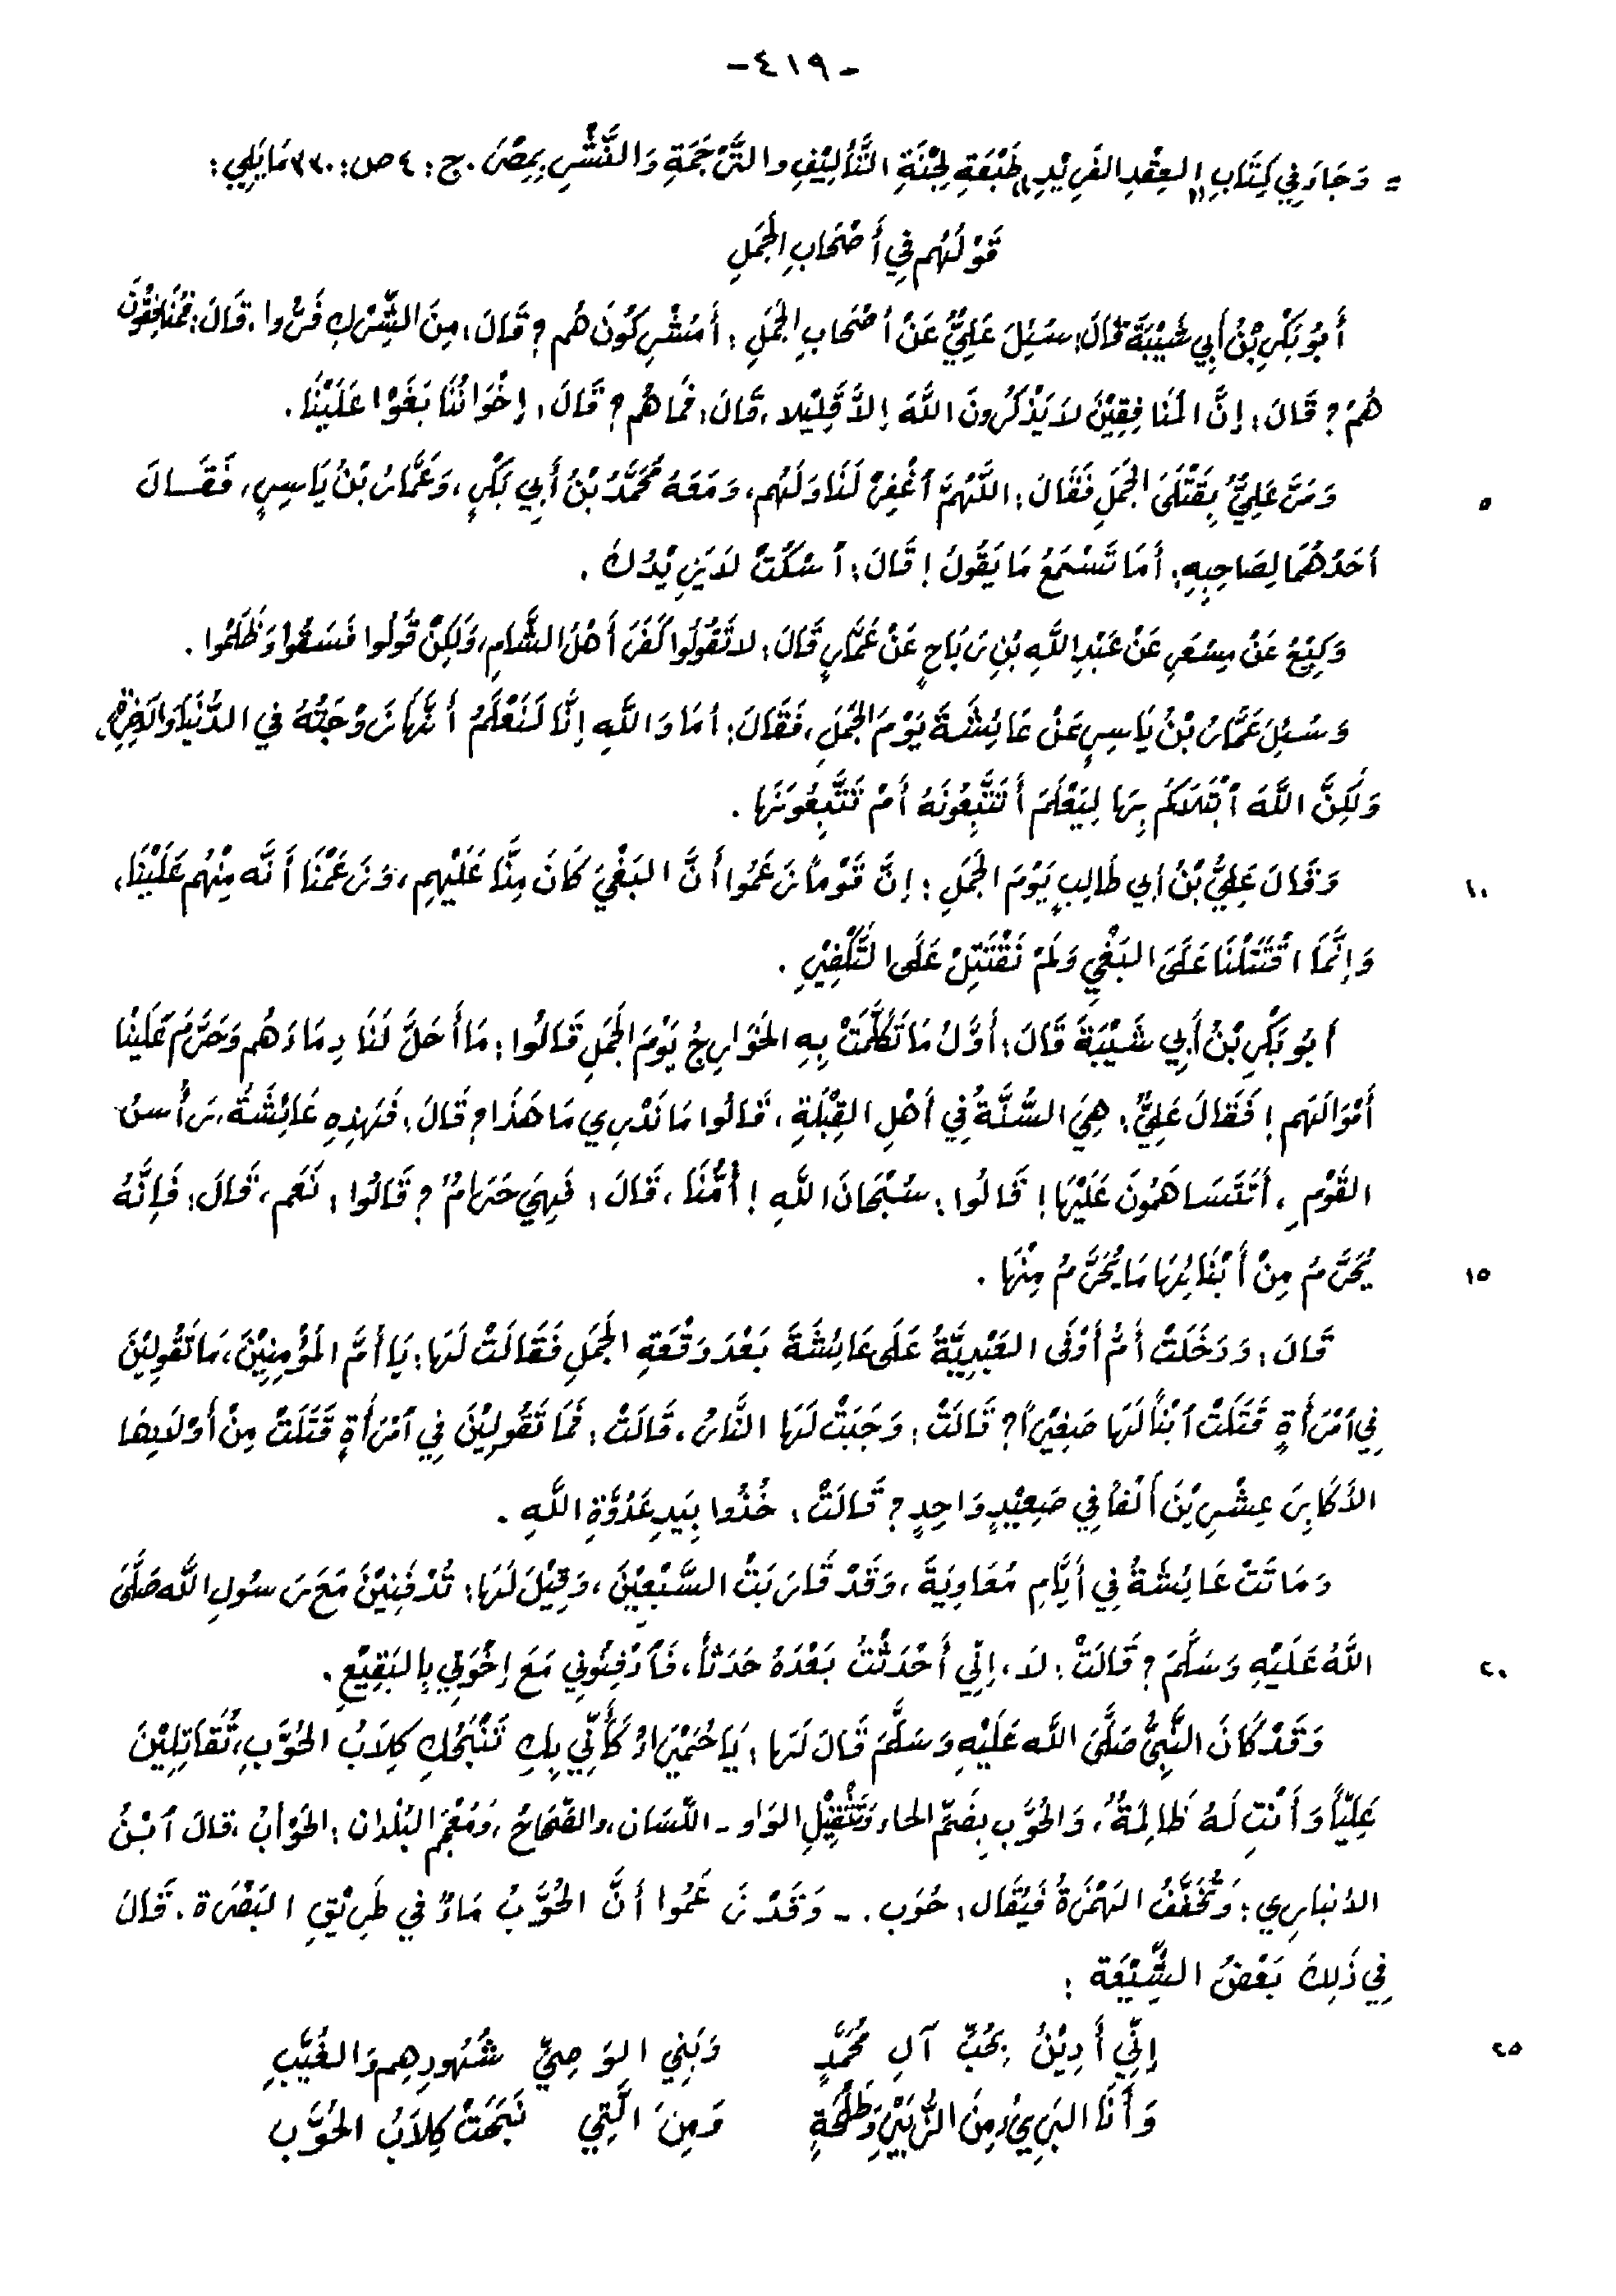 -٤١٩-
= وَجَاءَ فِي كِتَابِ "العِقْدِ الفَرِيْدِ" طَبْعَةِ لَجْنَةِ التَّأْلِيْفِ والتَّرْجَمَةِ وَالنَّشْرِ بِمِصْرَ . ج : ٤ ص : ٣٣٠ مَا يَلِي :
قَوْلُهُم فِي أَصْحَابِ الجَمَلِ
أَبُو بَكْرِ بْنُ أَبِي شَيْبَةَ قَالَ : سُئِلَ عَلِيٌّ عَنْ أَصْحَابِ الجَمَلِ : أَمُشْرِكُونَ هُم ؟ قَالَ : مِنَ الشِّرْكِ فَرُّوا ، قَالَ : فَمُنَافِقُونَ
هُمْ ؟ قَالَ : إِنَّ المُنَافِقِيْنَ لاَ يَذْكُرُونَ اللَّهَ إِلاَّ قَلِيْلاً ، قَالَ : فَمَا هُم ؟ قَالَ : إِخْوَانُنَا بَغَوْا عَلَيْنَا .
٥ وَمَرَّ عَلِيٌّ بِقَتْلَى الجَمَلِ فَقَالَ : اللَّهُمَّ ٱغْفِرْ لَنَا وَلَهُم ، وَمَعَهُ مُحَمَّدُ بْنُ أَبِي بَكْرٍ ، وَعَمَّارُ بْنُ يَاسِرٍ ، فَقَالَ
أَحَدُهُمَا لِصَاحِبِهِ : أَمَا تَسْمَعُ مَا يَقُولُ ! قَالَ : ٱسْكُتْ لاَ يَزِيْدُكَ .
وَكِيْعُ عَنْ مِسْعَرٍ عَنْ عَبْدِ اللَّهِ بْنِ رَبَاحٍ عَنْ عَمَّارٍ قَالَ : لاَ تَقُولُوا كَفَرَ أَهْلُ الشَّامِ ، وَلَكِنْ قُولُوا فَسَقُوا وَظَلَمُوا .
وَسُئِلَ عَمَّارُ بْنُ يَاسِرٍ عَنْ عَائِشَةَ يَوْمَ الجَمَلِ ، فَقَالَ : أَمَا وَاللَّهِ إِنَّا لَنَعْلَمُ أَنَّهَا زَوْجَتُهُ فِي الدُّنْيَا وَالآخِرَةِ ،
وَلَكِنَّ اللَّهَ ٱبْتَلاَكُم بِهَا لِيَعْلَمَ أَتَتَّبِعُونَهُ أَمْ تَتَّبِعُونَهَا .
١٠ وَقَالَ عَلِيُّ بْنُ أَبِي طَالِبٍ يَوْمَ الجَمَلِ : إِنَّ قَوْماً زَعَمُوا أَنَّ البَغْيَ كَانَ مِنَّا عَلَيْهِم ، وَزَعَمْنَا أَنَّه مِنْهُم عَلَيْنَا ،
وَإِنَّمَا اقْتَتَلْنَا عَلَى البَغْيِ وَلَمْ نَقْتَتِلْ عَلَى التَّكْفِيْرِ .
أَبُو بَكْرِ بْنُ أَبِي شَيْبَةَ قَالَ : أَوَّلُ مَا تَكَلَّمَتْ بِهِ الخَوَارِجُ يَوْمَ الجَمَلِ قَالُوا : مَا أَحَلَّ لَنَا دِمَاءَهُم وَحَرَّمَ عَلَيْنَا
أَمْوَالَهُم ! فَقَالَ عَلِيٌّ : هِيَ السُّنَّةُ فِي أَهْلِ القِبْلَةِ ، قَالُوا مَا نَدْرِي مَا هَذَا ؟ قَالَ : فَهَذِهِ عَائِشَةُ ، رَأْسُ
القَوْمِ ، أَتَتَسَاهَمُونَ عَلَيْهَا ! قَالُوا : سُبْحَانَ اللَّهِ ! أُمُّنَا ، قَالَ : فَهِيَ حَرَامٌ ؟ قَالُوا : نَعَم ، قَالَ : فَإِنَّهُ
١٥ يُحَرَّمُ مِنْ أَبْنَائِهَا مَا يُحَرَّمُ مِنْهَا .
قَالَ : وَدَخَلَتْ أُمُّ أَوْفَى العَبْدِيَّةُ عَلَى عَائِشَةَ بَعْدَ وَقْعَةِ الجَمَلِ فَقَالَتْ لَهَا : يَا أُمَّ المُؤْمِنِيْنَ ، مَا تَقُولِيْنَ
فِي ٱمْرَأَةٍ قَتَلَتْ ٱبْناً لَهَا صَغِيْراً ؟ قَالَتْ : وَجَبَتْ لَهَا النَّارُ ، قَالَتْ : فَمَا تَقُولِيْنَ فِي ٱمْرَأَةٍ قَتَلَتْ مِنْ أَوْلاَدِهَا
الأَكَابِرَ عِشْرِيْنَ أَلْفاً فِي صَعِيْدٍ وَاحِدٍ ؟ قَالَتْ : خُذُوا بِيَدِ عَدُوَّةِ اللَّهِ .
وَمَاتَتْ عَائِشَةُ فِي أَيَّامِ مُعَاوِيَةَ ، وَقَدْ قَارَبَتْ السَّبْعِيْنَ ، وَقِيْلَ لَهَا : تُدْفَنِيْنَ مَعَ رَسُولِ اللَّه صَلَّى
٢٠ اللَّهُ عَلَيْهِ وَسَلَّمَ ؟ قَالَتْ : لاَ ، إِنِّي أَحْدَثْتُ بَعْدَهُ حَدَثاً ، فَٱدْفِنُونِي مَعَ إِخْوَتِي بِالبَقِيْعِ .
وَقَدْ كَانَ النَّبِيُّ صَلَّى اللَّه عَلَيْهِ وَسَلَّمَ قَالَ لَهَا : يَا حُمَيْرَاءُ كَأَنِّي بِكِ تَنْبَحُكِ كِلاَبُ الحُوَّبِ ، تُقَاتِلِيْنَ
عَلِيّاً وَأَنْتِ لَهُ ظَالِمَةٌ ، وَالحُوَّب بِضَمِّ الحاء وَتَثْقِيْلِ الوَاوِ - اللِّسَان ، والصِّحَاحُ ، وَمُعْجَم البُلْدان : الحَوْأَبُ ، قالَ ٱبْنُ
الأنباري : وَتُخَفَّفُ الهَمْزَةُ فَيُقَال : حُوَب . - وَقَدْ زَعَمُوا أَنَّ الحُوَّبُ مَاءٌ فِي طَرِيْقِ البَصْرَة . قَالَ
فِي ذَلِكَ بَعْضُ الشِّيْعَة :
٢٥ إِنِّي أَدِيْنُ بِحُبِّ آلِ مُحَمَّدٍ وَبَنِي الوَصِيِّ شُهُودِهِم وَالغُيَّبِ
وَأَنَا البَرِيءُ مِنَ الزُّبَيْرِ وَطَلْحَةٍ وَمِنَ الَّتِي نَبَحَتْ كِلاَبُ الحُوَّبِ